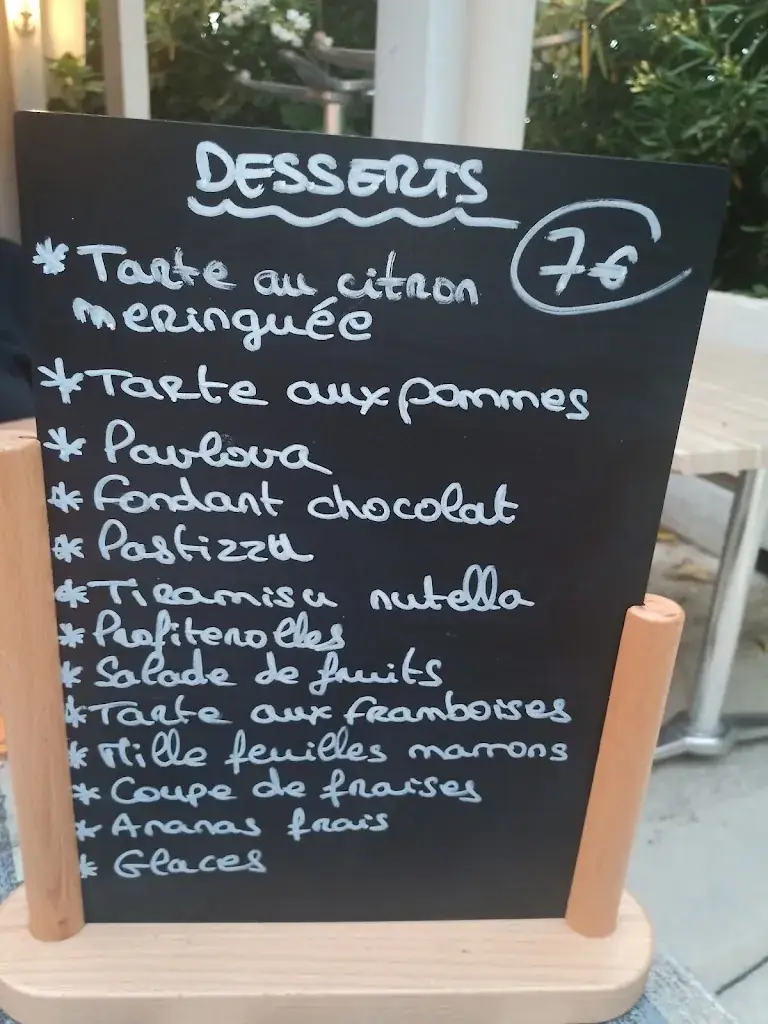 DESSERTS
7€
* Tarte au citron
meringuée
* Tarte aux pommes
* Pavlova
* Fondant chocolat
* Pastizzu
* Tiramisu nutella
* Profiterolles
* Salade de fruits
* Tarte aux framboises
* Mille feuilles marrons
* Coupe de fraises
* Ananas frais
* Glaces